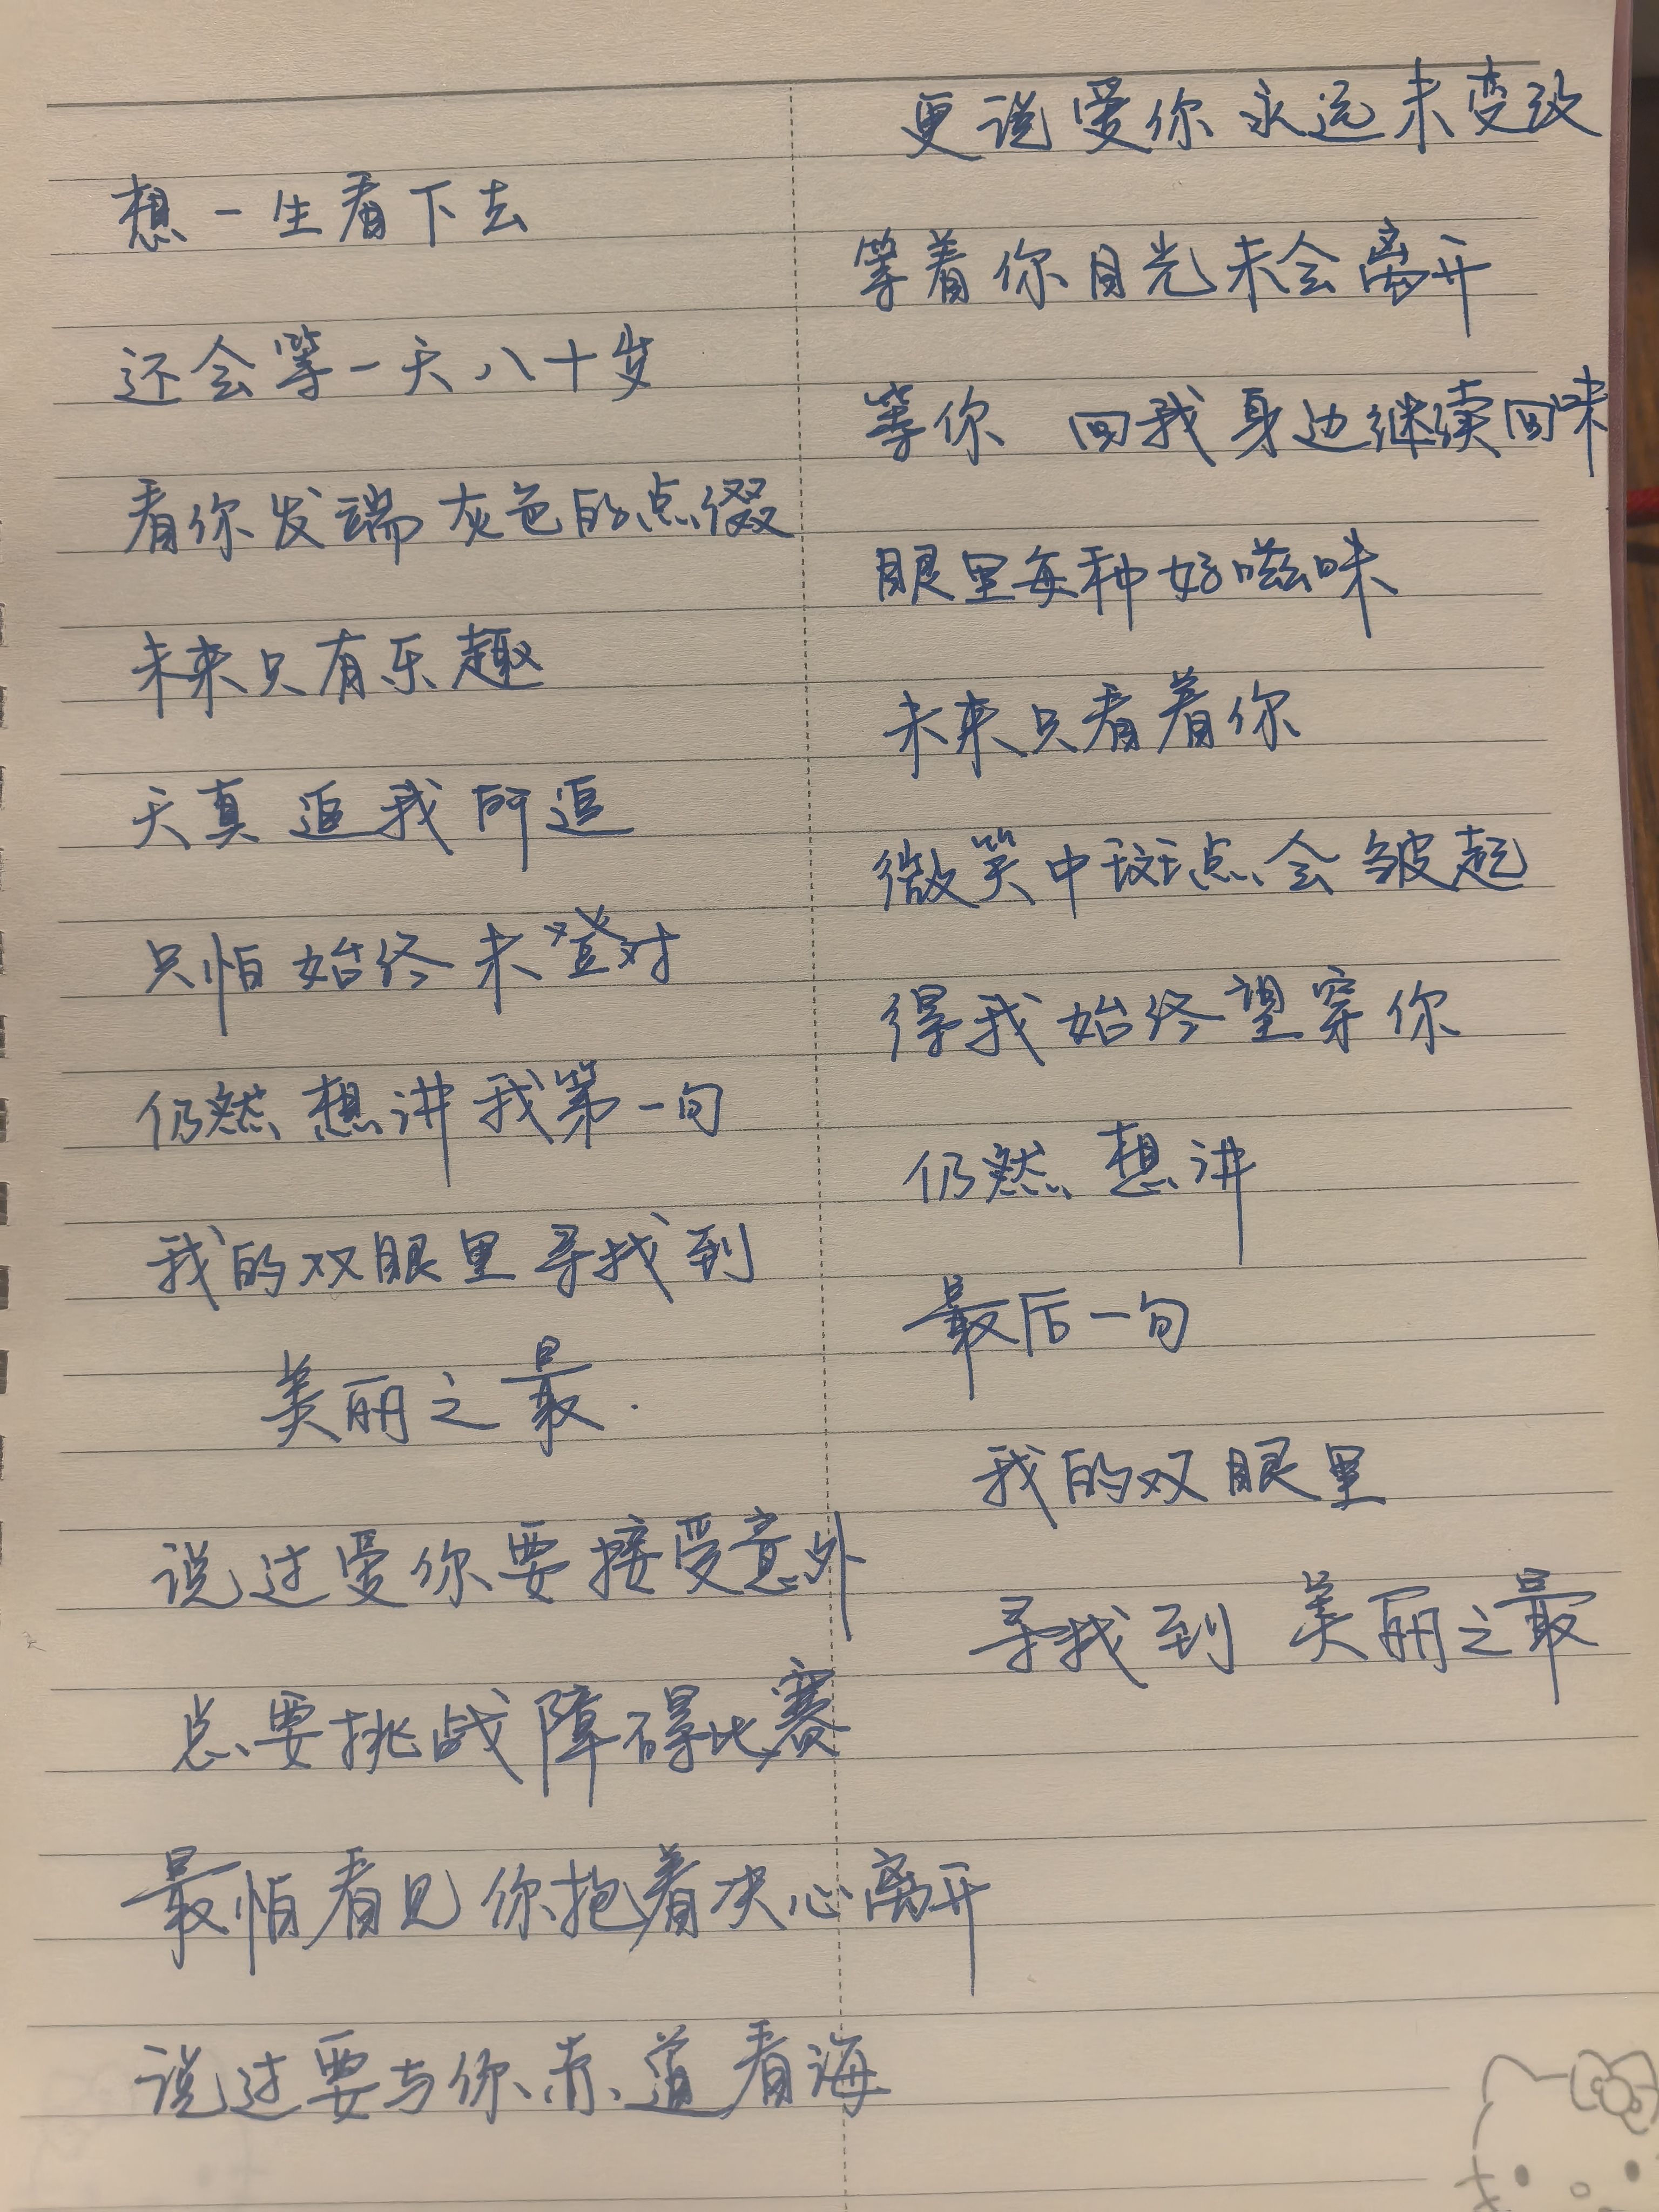 想一生看下去
还会等一天八十岁
看你发端灰色的点缀
未来只有乐趣
天真追我所追
只怕始终未登对
仍然想讲我第一句
我的双眼里寻找到
美丽之最.
说过爱你要接受意外
总要挑战障碍比赛
最怕看见你抱着决心离开
说过要与你赤道看海
更说爱你永远未变改
等着你目光未会离开
等你 回我身边继续回味
眼里每种好嗞味
未来只看着你
微笑中斑点会皱起
得我始终望穿你
仍然想讲
最后一句
我的双眼里
寻找到 美丽之最